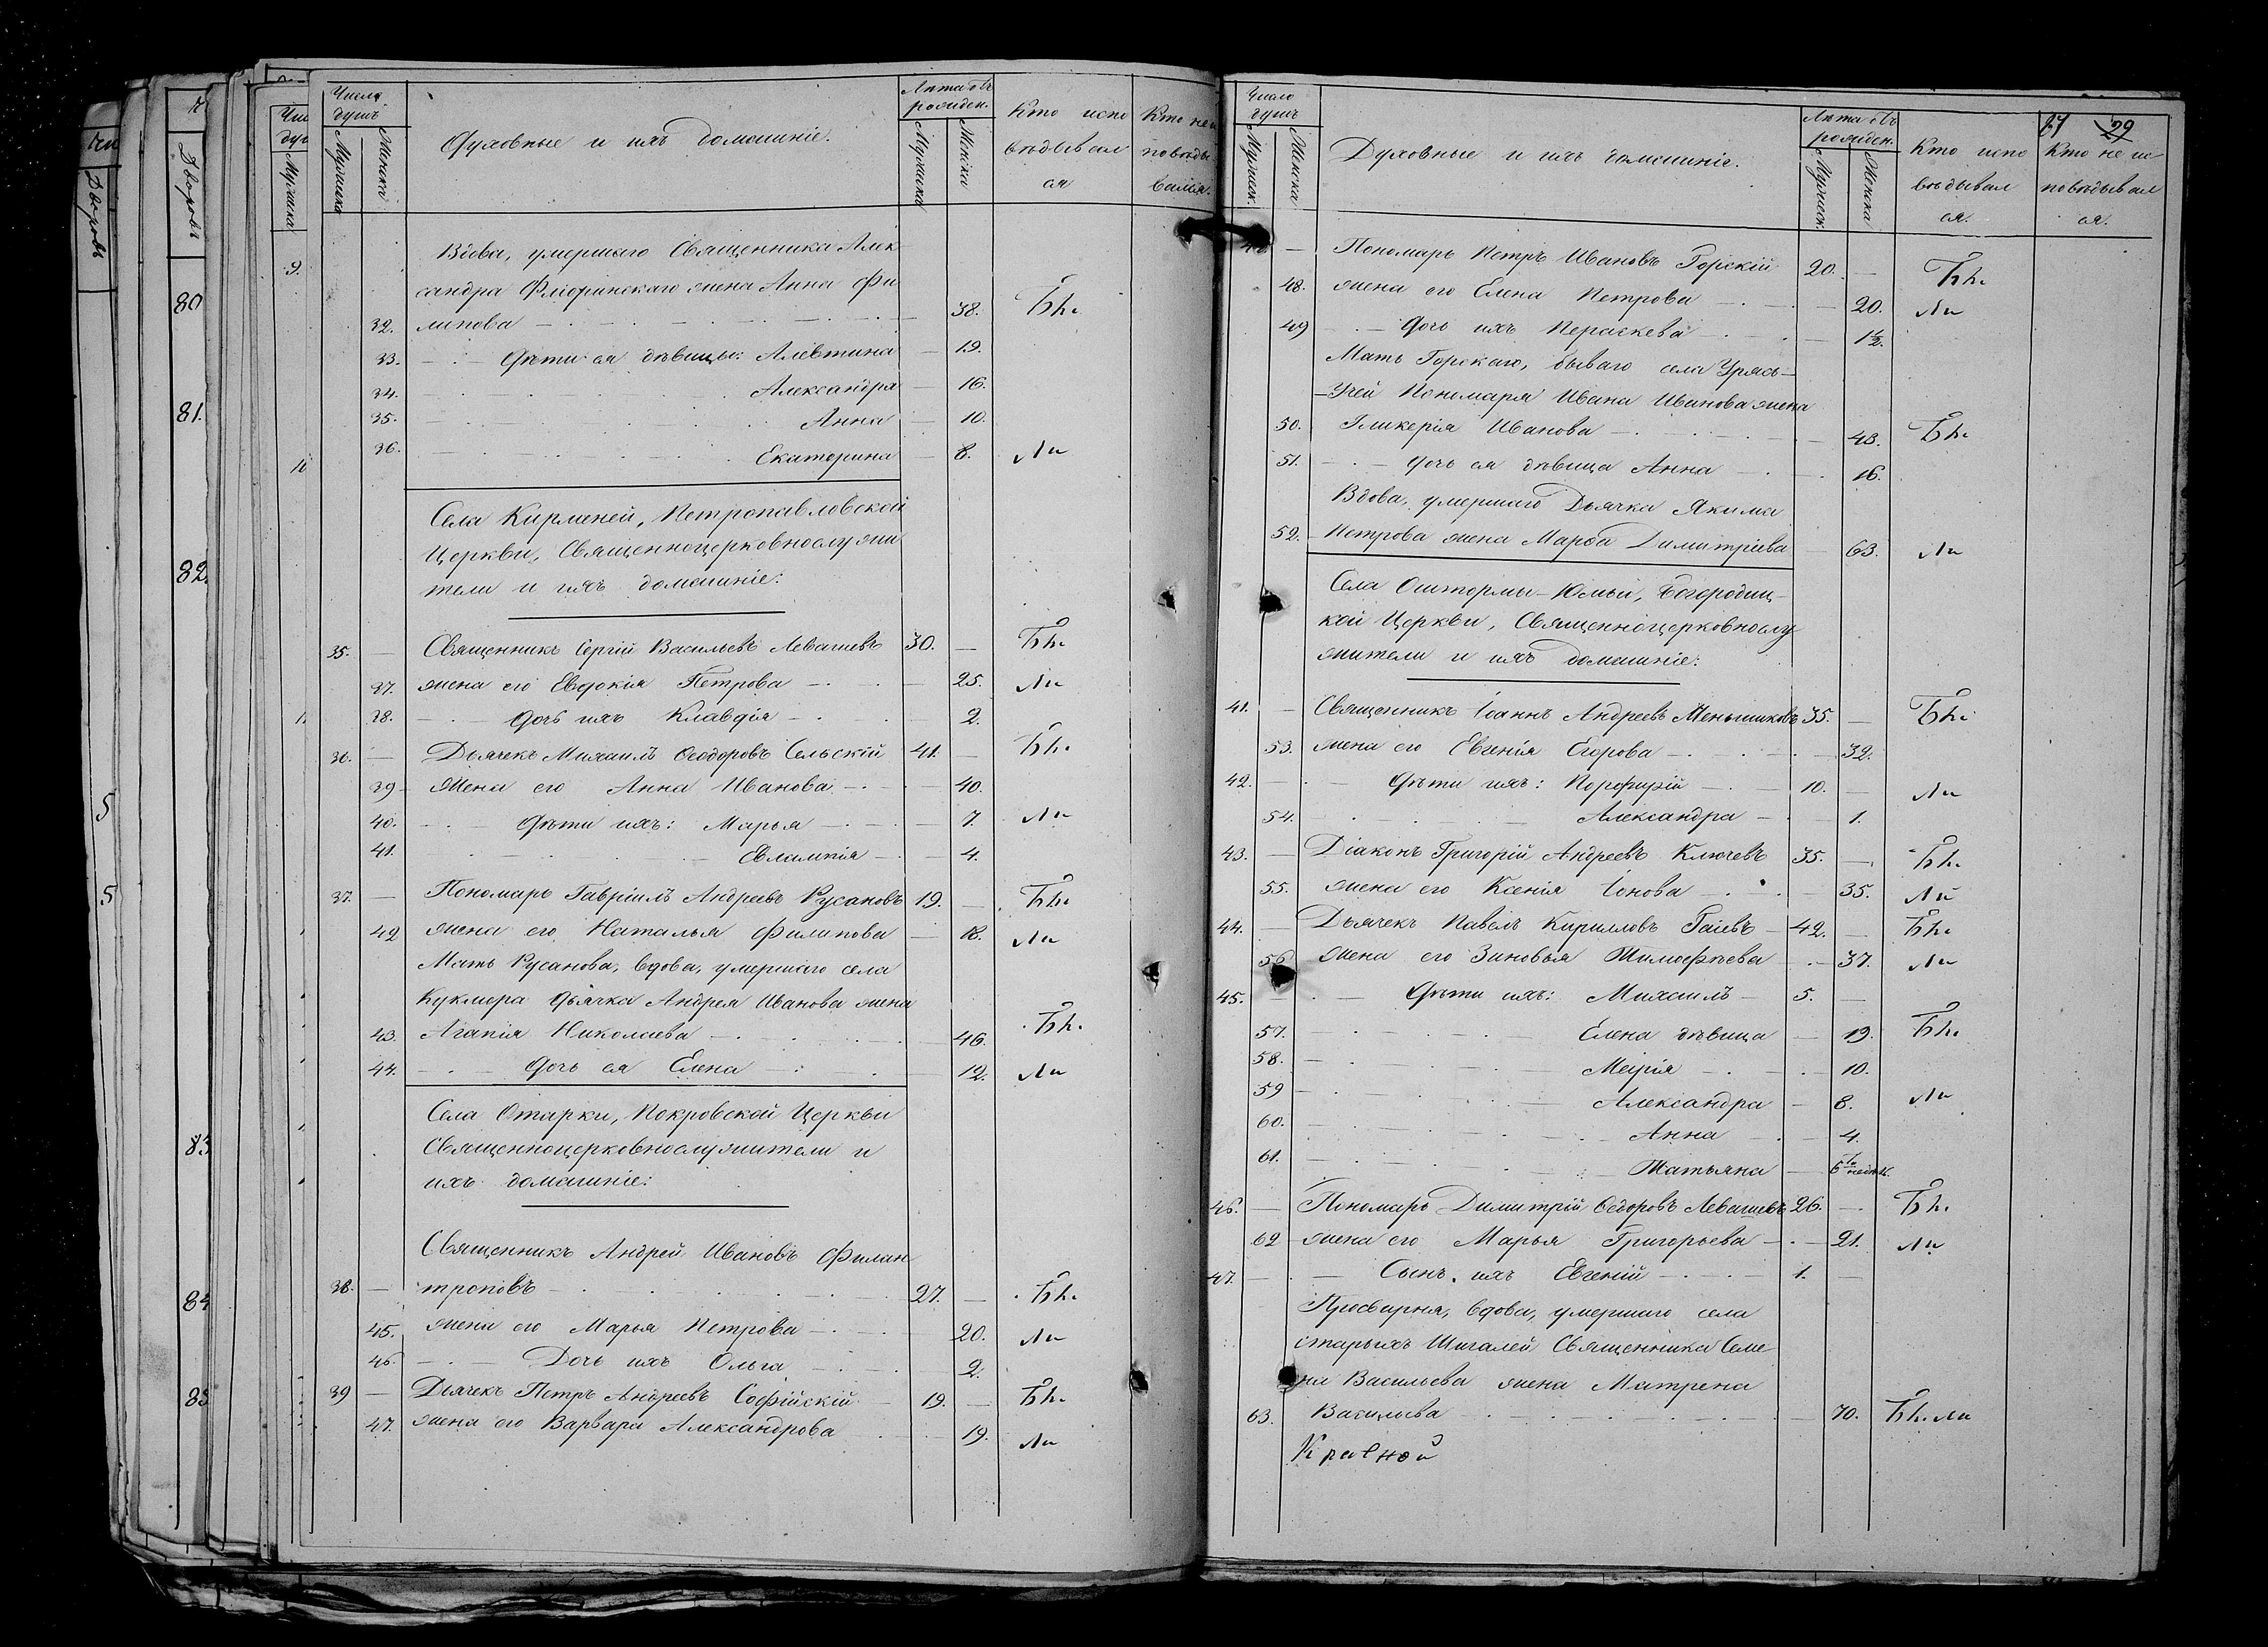 Число душъ
Мужска
Женска
Духовные и ихъ домашніе.
Лѣта отъ рожден.
Мужска
Женска
Кто испо
вѣдывал
ся
Кто не и
повѣды
вался.
Вдова, умершаго Священника Алек
сандра Флоринскаго жена Анна Фи
32. липова — 38. Бһ.
33. — Дѣти ея дѣвицы: Алевтина — 19.
34. Александра — 16.
35. Анна — 10.
36. Екатерина — 8. Ли
Села Кирменей, Петропавловской
Церкви, Священноцерковнослужи
тели и ихъ домашніе:
35. — Священникъ Сергій Васильевъ Левашевъ 30. — Бһ.
37. жена его Евдокія Петрова — 25. Ли
38. — Дочь ихъ Клавдія — 2.
36. — Дьячекъ Михаилъ Ѳеодоровъ Сельскій 41. — Бһ.
39 — Жена его Анна Иванова — 40.
40. — Дѣти ихъ: Марья — 7. Ли
41. Евлампія — 4.
37. — Пономарь Гавріилъ Андреевъ Русановъ 19. — Бһ.
42 жена его Наталья Филипова — 18. Ли
Мать Русанова, вдова, умершаго села
Кукмора Дьячка Андрея Иванова жена
43. Агапія Николаева — 46. Бһ.
44. — Дочь ея Елена — 12. Ли
Села Отарки, Покровской Церкви
Священноцерковнослужители и
ихъ домашніе:
Священникъ Андрей Ивановъ Филан
38. — троповъ — 27. — Бһ.
45. жена его Марья Петрова — 20. Ли
46. — Дочь ихъ Ольга — 2.
39 — Дьячекъ Петръ Андреевъ Софійскій — 19. — Бһ.
47. жена его Варвара Александрова 19. Ли
29
Число душъ
Мужеск.
Женска
Духовные и ихъ домашніе.
Лѣта отъ рожден.
Мужеск.
Женска
Кто испо
вѣдывал
ся.
Кто не ис
повѣдывал
ся.
40 — Пономарь Петръ Ивановъ Горскій 20. — Бһ.
48. жена его Елена Петрова — 20. Ли
49 — Дочь ихъ Параскева — 1½.
Мать Горскаго, бываго села Урясь-
-Учей Пономаря Ивана Иванова жена
50. Гликерія Иванова — 48. Бһ.
51. — Дочь ея дѣвица Анна — 16.
Вдова, умершаго Дьячка Якима
52. Петрова жена Марѳа Димитріева — 63. Ли
Села Оштормы-Юмьи, Богородиц-
кой Церкви, Священноцерковнослу
жители и ихъ домашніе:
41. — Священникъ Іоаннъ Андреевъ Меньшиковъ 35. — Бһ.
53. жена его Евгенія Егорова — 32.
42. — Дѣти ихъ: Порфирій — 10. — Ли
54. Александра — 1.
43. — Діаконъ Григорій Андреевъ Ключевъ 35. — Бһ.
55. жена его Ксенія Іонова — 35. Ли
44. — Дьячекъ Павелъ Кирилловъ Гаіевъ — 42. — Бһ.
56 жена его Зиновья Тимофѣева — 37. Ли
45. — Дѣти ихъ: Михаилъ — 5. —
57. Елена дѣвица — 19. Бһ.
58. Марія — 10.
59 Александра — 8. Ли
60. Анна — 4.
61. Татьяна — 6 недѣль
46. — Пономарь Димитрій Ѳедоровъ Левашевъ 26. — Бһ.
62 жена его Марья Григорьева — 21. Ли
47. — Сынъ ихъ Евгеній — 1. —
Просвирня, вдова, умершаго села
старыхъ Шигалей Священника Семе
на Васильева жена Матрена
63. Васильева — 70. Бһ. Ли